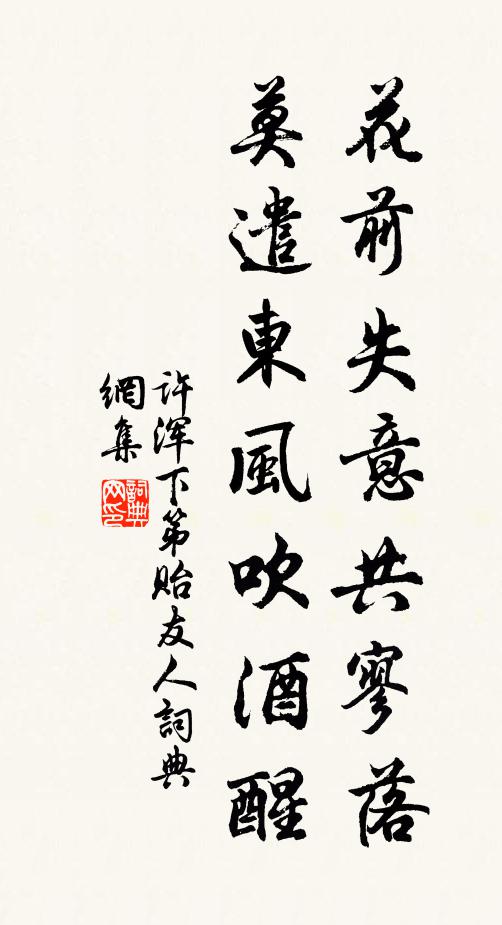 花前失意共寥落
莫遣東風吹酒醒
许浑下第贻友人詞典
網集
詞典
网印